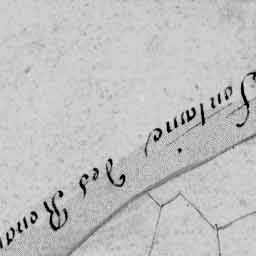 Fontaine des Rena